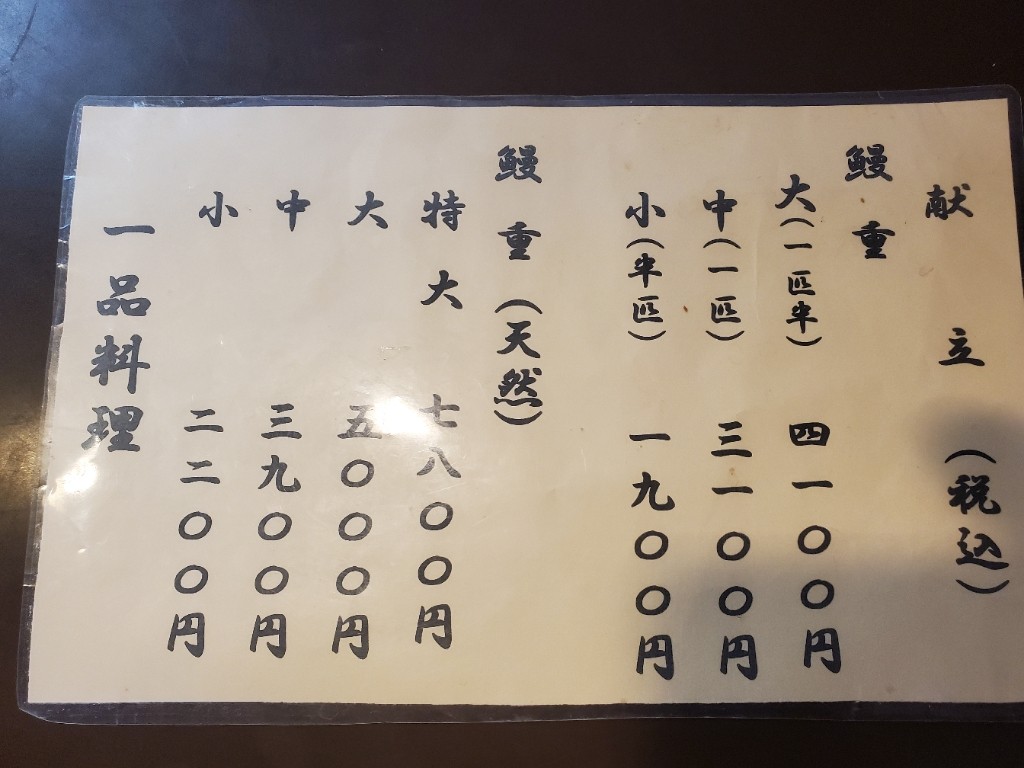 献立(税込)
鰻重
大(一匹半) 四一〇〇円
中(一匹) 三一〇〇円
小(半匹) 一九〇〇円
鰻重(天然)
特大 七八〇〇円
大 五〇〇〇円
中 三九〇〇円
小 二二〇〇円
一品料理